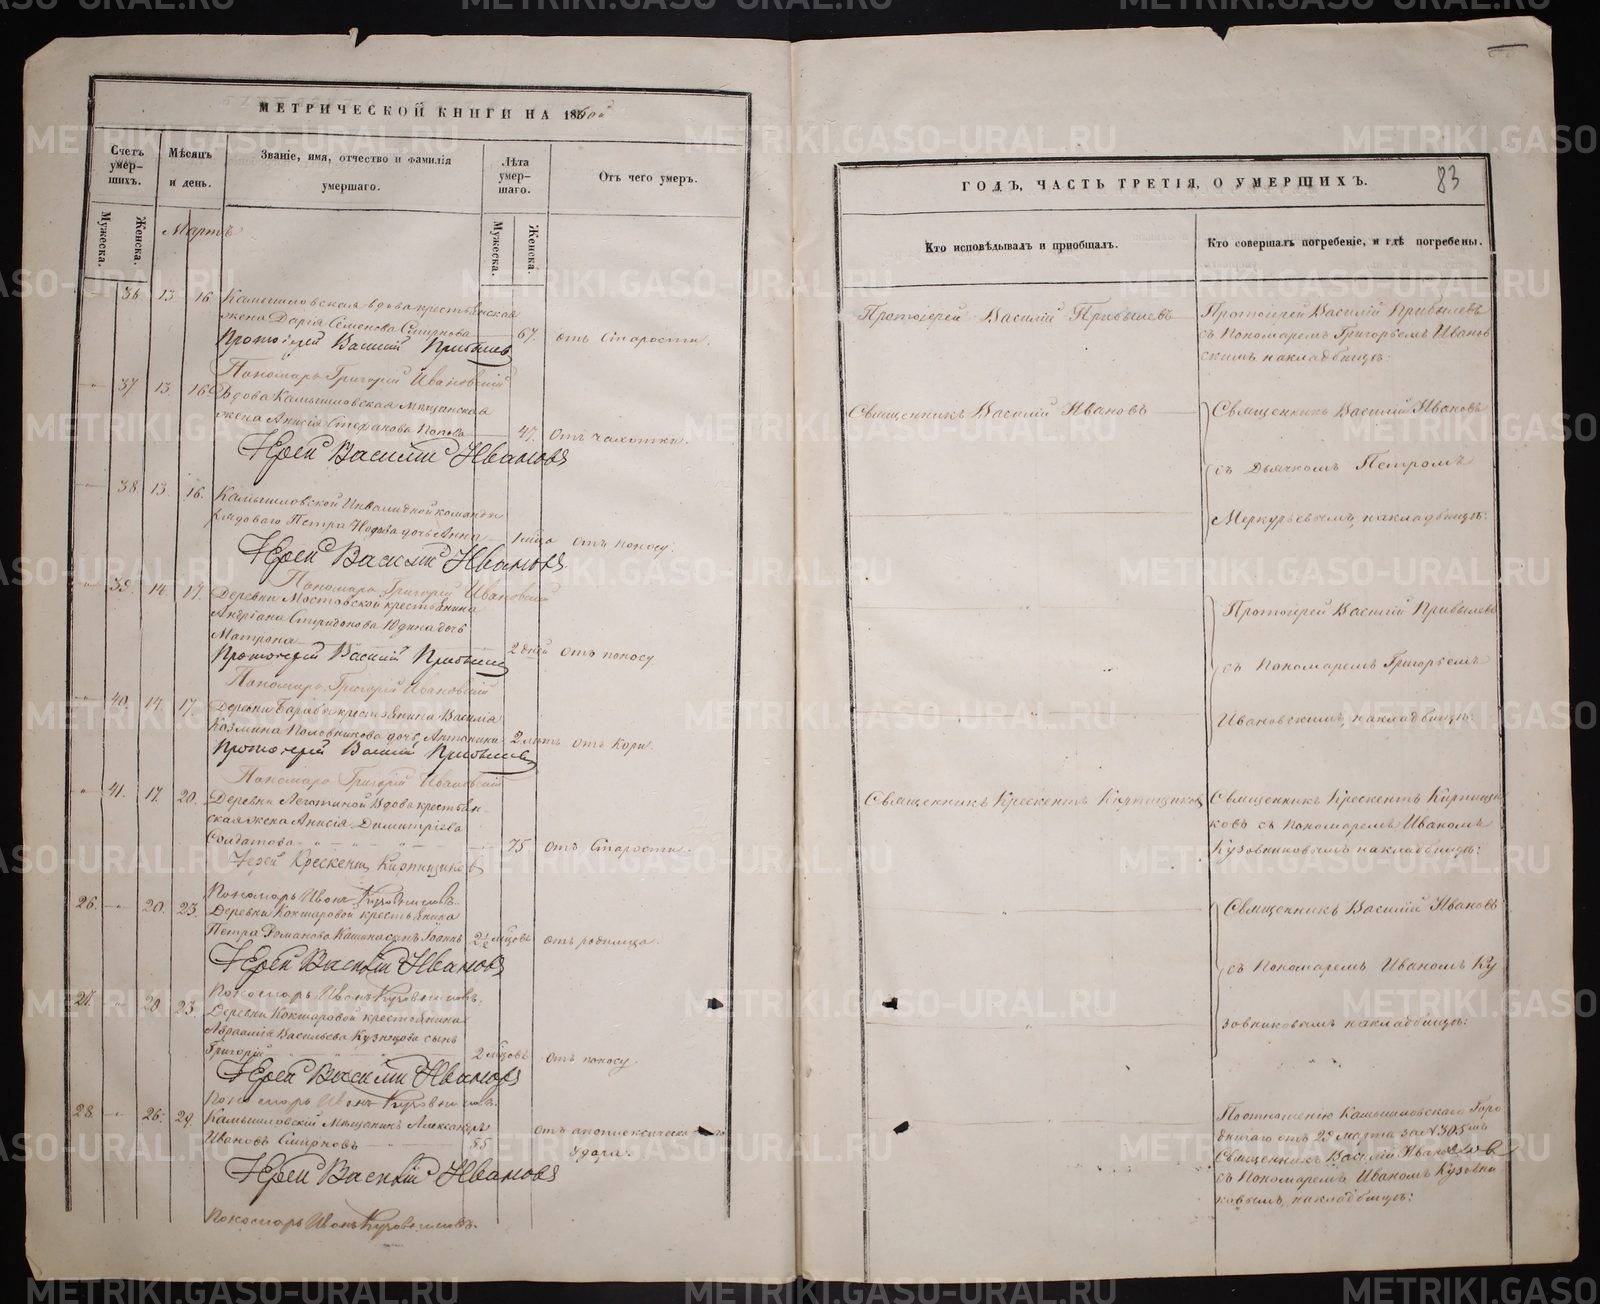 МЕТРИЧЕСКОЙ КНИГИ НА 18
Счетъ умер-шихъ.
Мѣсяцъ и день.
Званіе, имя, отчество и фамилія умершаго.
Лѣта умер-шаго.
Отъ чего умеръ.
Мужеска.
Женска.
Мартъ
Мужеска.
Женска.
36 13 16 Камышловская вдова крестьянская
жена Дарія Семенова Смирнова 67 отъ Старости.
Протоіерей Василій Прибылев
Пономарь Григорій Ивановскій
37 13 16 Вдова Камышловская Мѣщанская
жена Анисія Стефанова Попова 47 Отъ чахотки.
Іерей Василій Ивановъ
38 13 16 Камышловской Инвалидной команды
рядоваго Петра дочь Анна Отъ поносу.
Іерей Василій Ивановъ
Пономарь Григорій Ивановскій
39 14 17 Деревни Мостовской крестьянина
Юдина дочь
Матрона 2 дней отъ поносу
Протоіерей Василій Прибылев
Пономарь Григорій Ивановскій
40 14 17 Деревни крестьянина Василія
Козмина Половникова дочь 2 лѣтъ отъ Кори.
Протоіерей Василій Прибылев
Пономарь Григорій Ивановскій
41 17 20 Деревни Леготиной Вдова крестьян-
ская жена Анисія Димитріева
Солдатова 75 отъ Старости.
Іерей Крескентъ Кирпищиков
Пономарь Иванъ Кузовниковъ.
26 20 23 Деревни Кокшаровой крестьянина
Петра Романова сынъ Іоаннъ 2½ мѣсовъ отъ родимца.
Іерей Василій Ивановъ
Пономарь Иванъ Кузовниковъ.
27 20 23 Деревни Кокшаровой крестьянина
Авраамія Васильева Кузнецова сынъ
Григорій 2 мѣсовъ отъ поносу.
Іерей Василій Ивановъ
Пономарь Иванъ Кузовниковъ.
28 26 29 Камышловскій Мѣщанинъ Александръ
Ивановъ Смирновъ 55 Отъ апоплексическаго
удара.
Іерей Василій Ивановъ
Пономарь Иванъ Кузовниковъ.
83
ГОДЪ, ЧАСТЬ ТРЕТІЯ, О УМЕРШИХЪ.
Кто исповѣдывалъ и пріобщалъ.
Кто совершалъ погребеніе, и гдѣ погребены.
Протоіерей Василій Прибылевъ
Протоіерей Василій Прибылевъ
съ Пономаремъ Григорьемъ Иванов
скимъ на кладбищѣ:
Священникъ Василій Ивановъ
Священникъ Василій Ивановъ
съ Дьячкомъ Петромъ
Меркурьевымъ, на кладбищѣ:
Протоіерей Василій Прибылевъ
съ Пономаремъ Григорьемъ
Ивановскимъ, на кладбищѣ:
Священникъ Крескентъ Кирпищиковъ
Священникъ Крескентъ Кирпищи
ковъ съ Пономаремъ Иваномъ
Кузовниковымъ на кладбищѣ:
Священникъ Василій Ивановъ
съ Пономаремъ Иваномъ Ку
зовниковымъ на кладбищѣ:
По отношенію Камышловскаго Горо
дничаго отъ 29 марта за № 305
Священникъ Василій Ивановъ
съ Пономаремъ Иваномъ Кузовни
ковымъ, на кладбищѣ:
METRIKI.GASO-URAL.RU